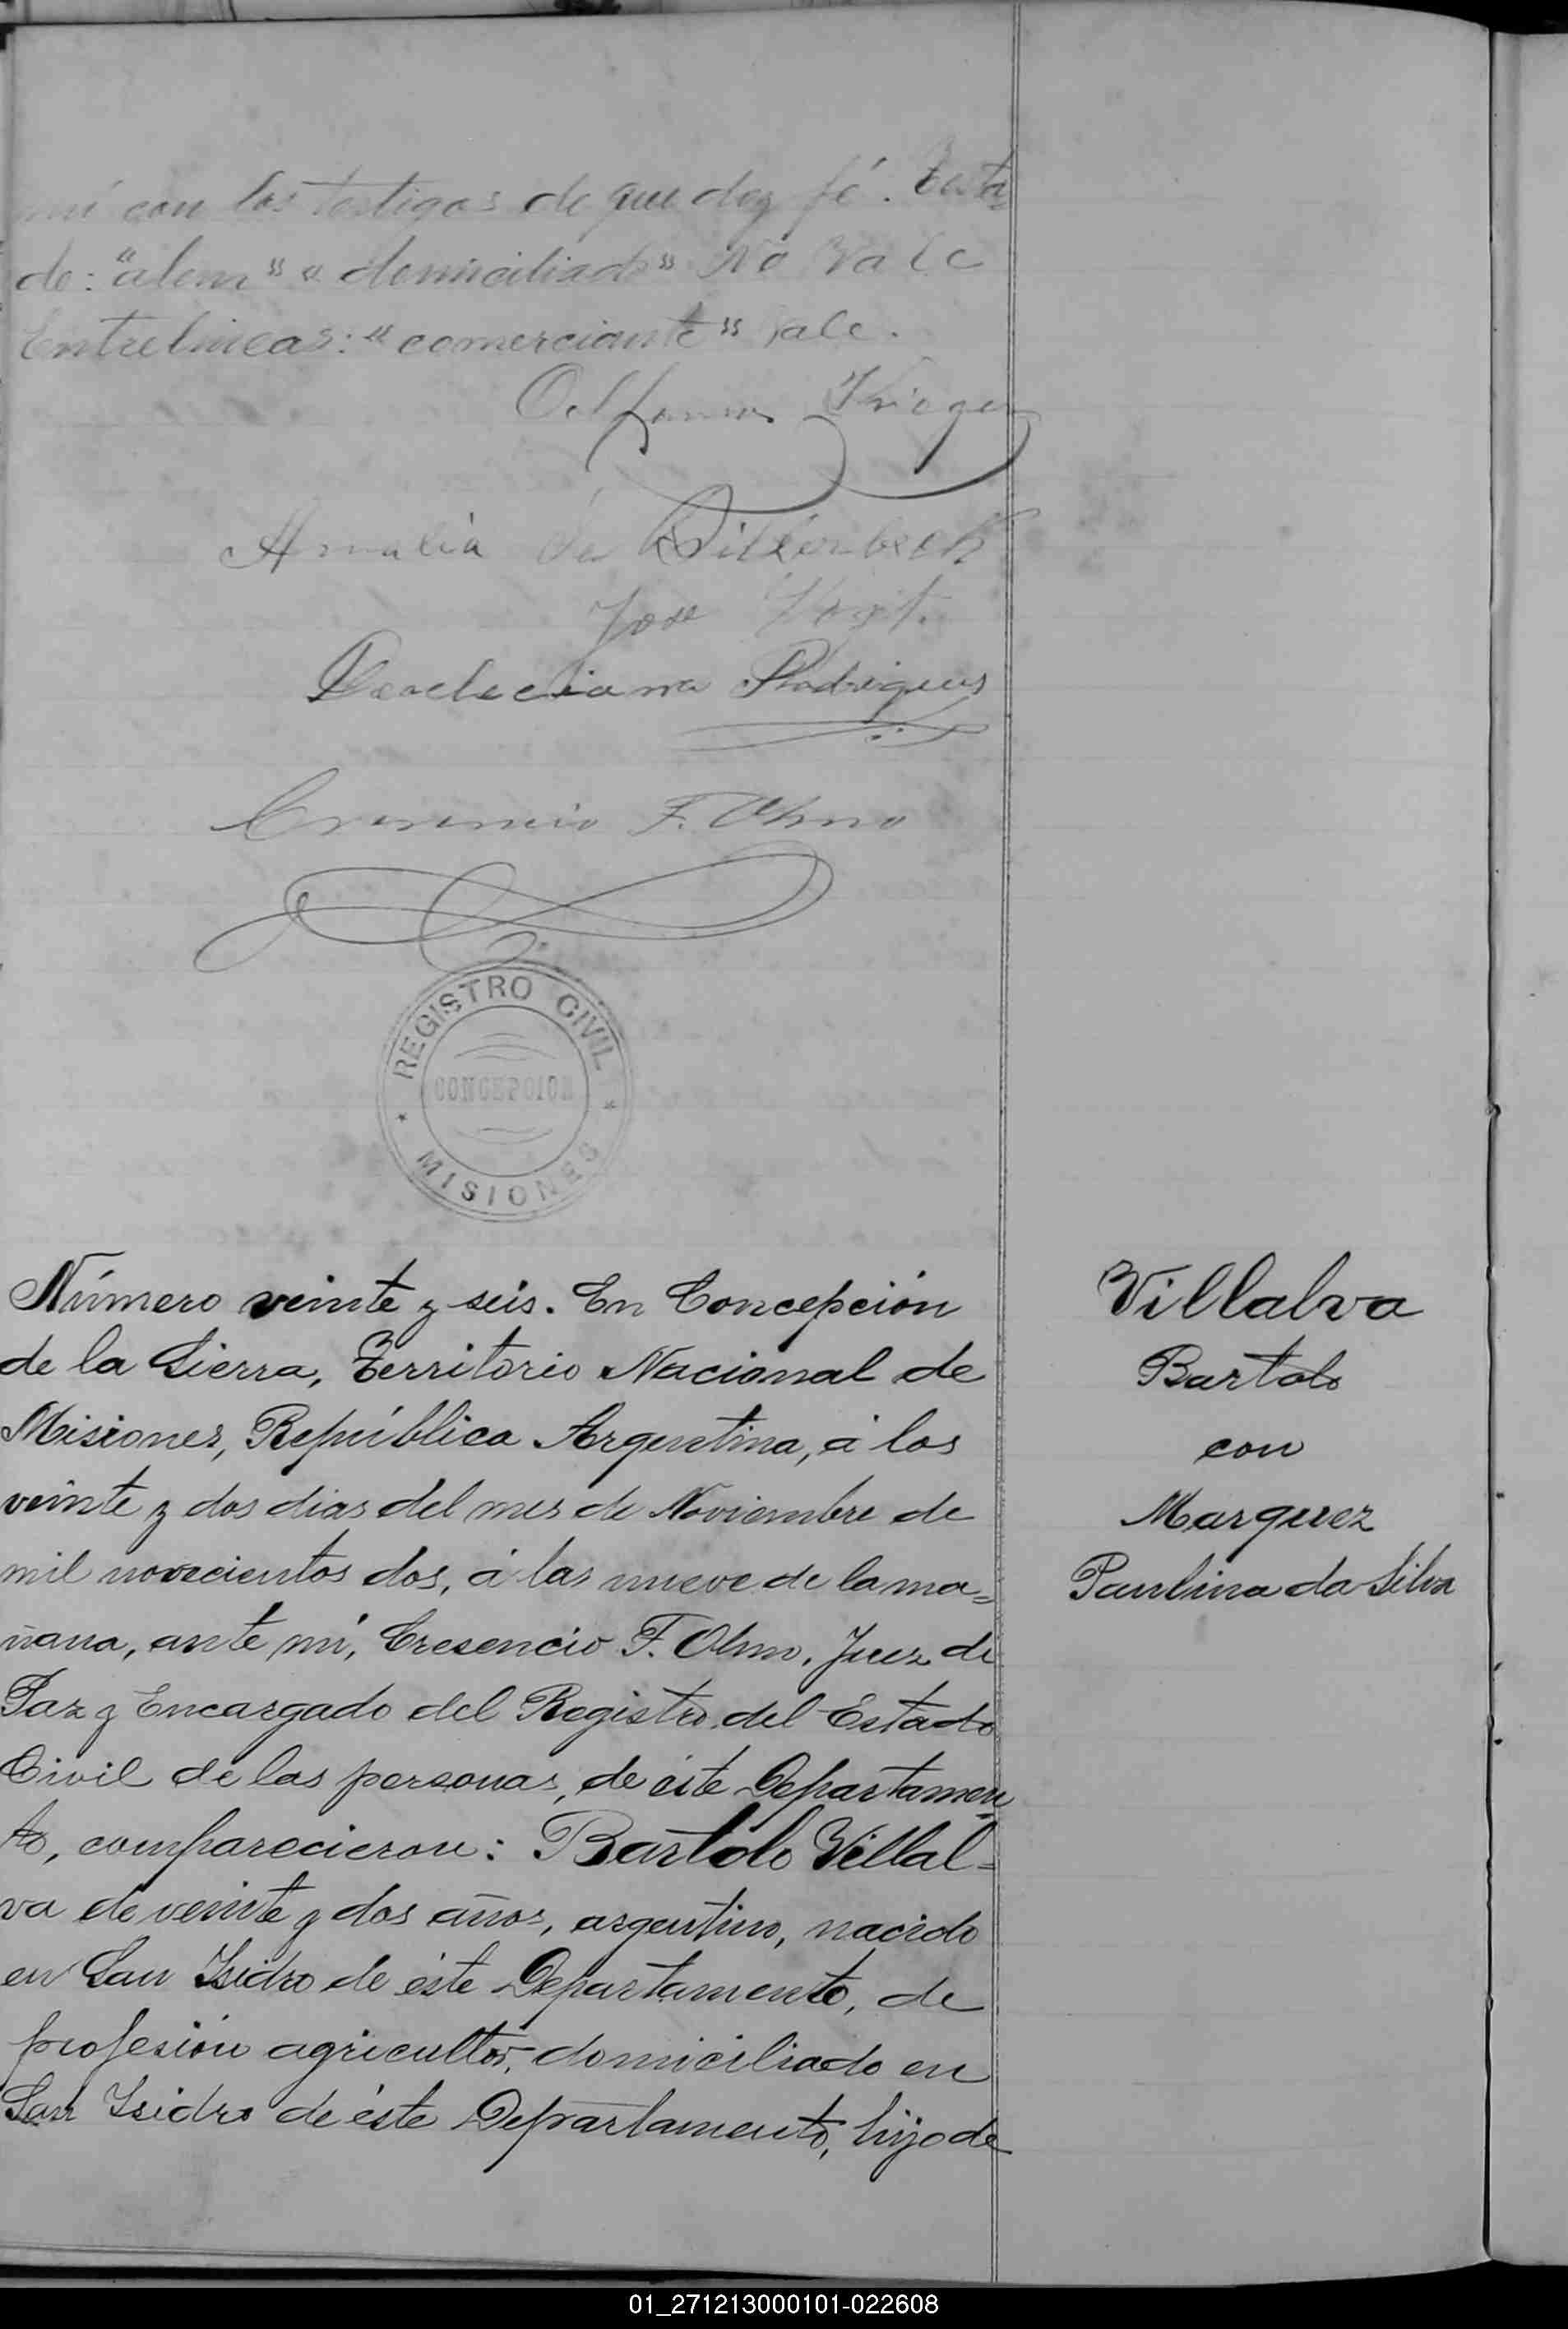 mí con los testigos de que doy fé. Testa-
do: "alem" "domiciliado" No Vale
Entrelineas: "comerciante" Vale.
Amalia de
José
Deocleciana Rodrigues
Cresencio F. Ohmo
REGISTRO CIVIL
CONCEPCION
MISIONES
Número veinte y seis. En Concepción
de la Sierra, Territorio Nacional de
Misiones, República Argentina, á los
veinte y dos dias del mes de Noviembre de
mil novecientos dos, á las nueve de la ma=
ñana, ante mí, Cresencio F. Ohmo, Juez de
Paz y Encargado del Registro del Estado
Civil de las personas, de éste Departamen
to, comparecieron: Bartolo Villal=
va de veinte y dos años, argentino, nacido
en San Isidro de éste Departamento, de
profesión agricultor, domiciliado en
San Isidro de éste Departamento, hijo de
Villalva
Bartolo
con
Marquez
Paulina da Silva
01_271213000101-022608